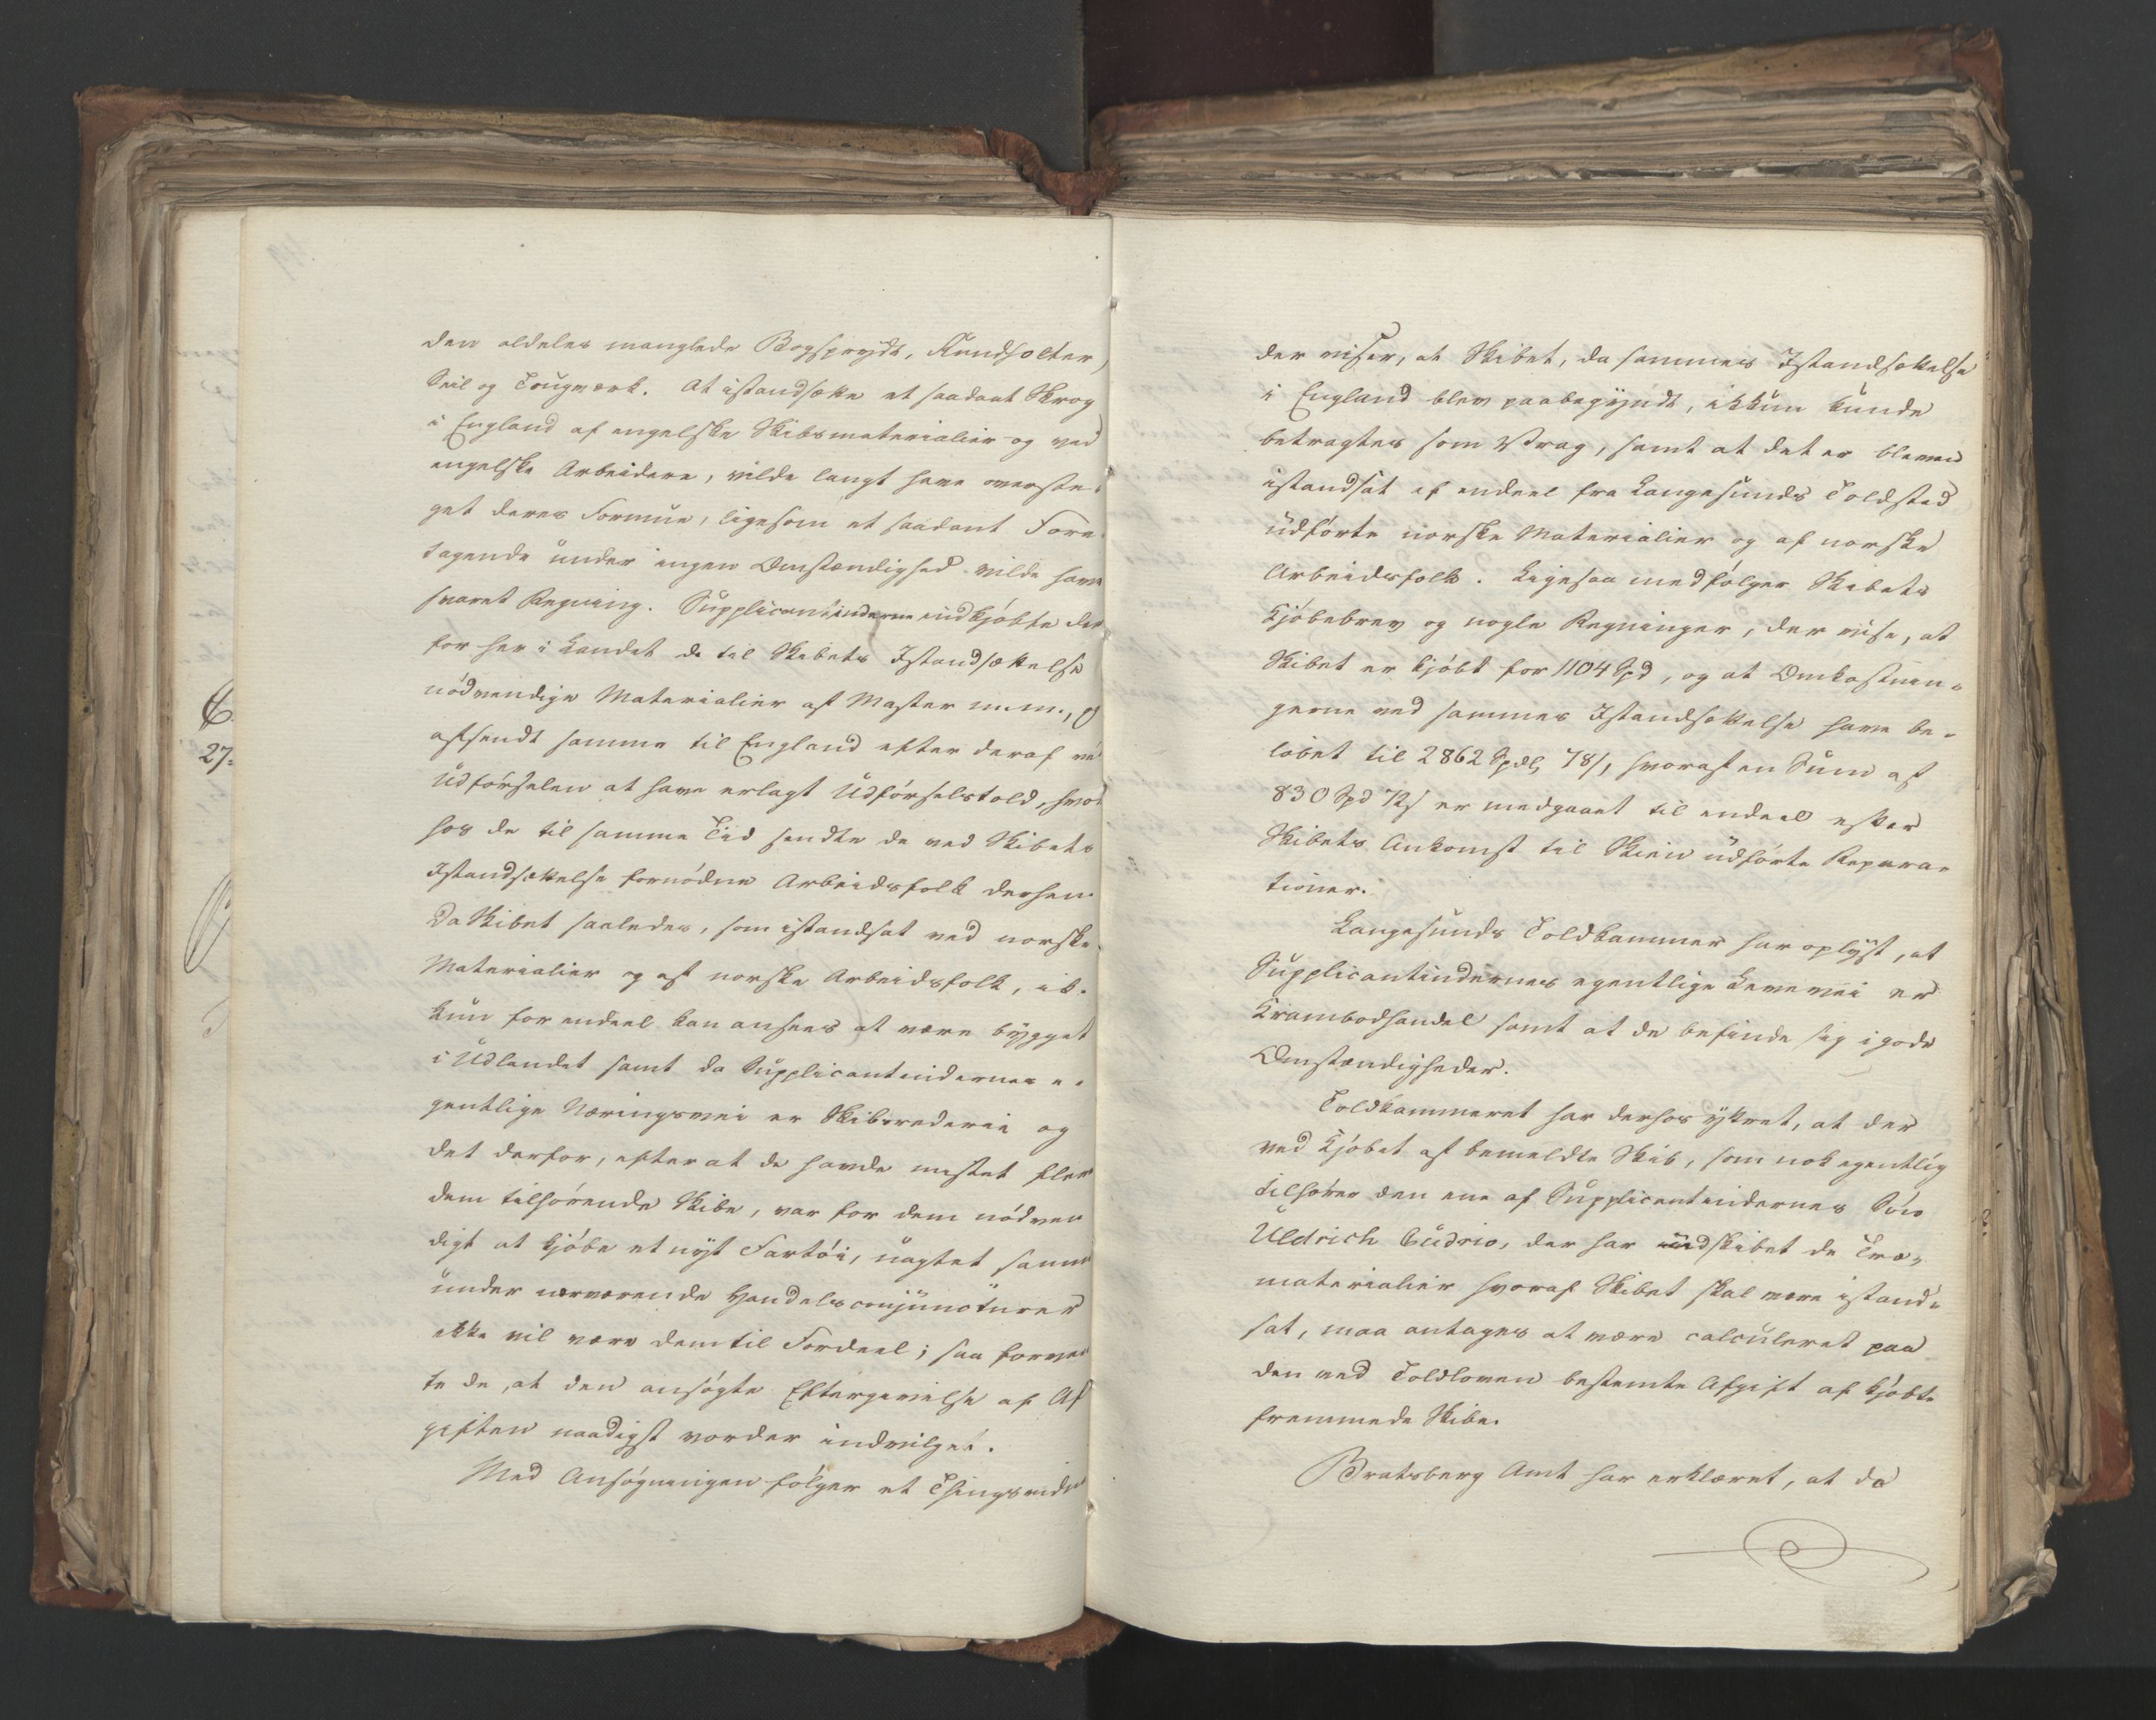 den aldeles manglede Bogsprydt, Rundholter,
Seil og Tougværk. At istandsætte et saadant Skrog
i England af engelske Skibsmaterialier og ved
engelske Arbeidere, vilde langt have overste-
get deres Formue, ligesom et saadant Fore-
tagende under ingen Omstændighed vilde have
svaret Regning. Supplicantinderne indkjøbte der
for her i Landet de til Skibets Istandsættelse
nødvendige Materialier af Master m.m., og
afsendt samme til England efter deraf ved
Udførselen at have erlagt Udførselstold, hvor
hos de til samme Tid sendte de ved Skibets
Istandsættelse fornødne Arbeidsfolk derhen.
Da Skibet saaledes, som istandsat ved norske
Materialier og af norske Arbeidsfolk, ik-
kun for endeel kan ansees at være bygget
i Udlandet samt da Supplicantindernes e-
gentlige Næringsvei er Skibsrederie og
det derfor, efterat de havde mistet flere
dem tilhørende Skibe, var for dem nødven
digt at kjøbe et nyt Fartøi, uagtet samme
under nærværende Handelsconjuncturer
ikke vil være dem til Fordeel; saa formene
te de, at den ansøgte Eftergivelse af Af
giften naadigst vorder indvilget.
Med Ansøgningen følger et Thingsvidne
der viser, at Skibet, da sammes Istandsættelse
i England blev paabegyndt, ikkun kunde
betragtes som Vrag, samt at det er bleven
istandsat af endeel fra Langesunds Toldsted
udførte norske Materialier og af norske
Arbeidsfolk. Ligesaa medfølger Skibets
Kjøbebrev og nogle Regninger, der vise, at
Skibet er kjøbt for 1104 Spd, og at Omkostnin-
gerne ved sammes Istandsættelse have be-
løbet til 2862 Spdl, 78/, hvoraf en Sum af
830 Spd 72/ er medgaaet til endeel efter
Skibets Ankomst til Skien udførte Repara-
tioner.
Langesunds Toldkammer har oplyst, at
Supplicantindernes egentlige Levevei er
Krambodhandel samt at de befinde sig i gode
Omstændigheder.
Toldkammeret har derhos yttret, at der
ved Kjøbet af bemeldte Skib, som nok egentlig
tilhører den ene af Supplicantindernes Søn
Uldrich Cudrio, der har udskibet de Træ-
materialier hvoraf Skibet skal være istand-
sat, maa antages at være calculeret paa
den ved Toldloven bestemte Afgift af kjøbte
fremmede Skibe.
Bratsberg Amt har erklæret, at da
27.